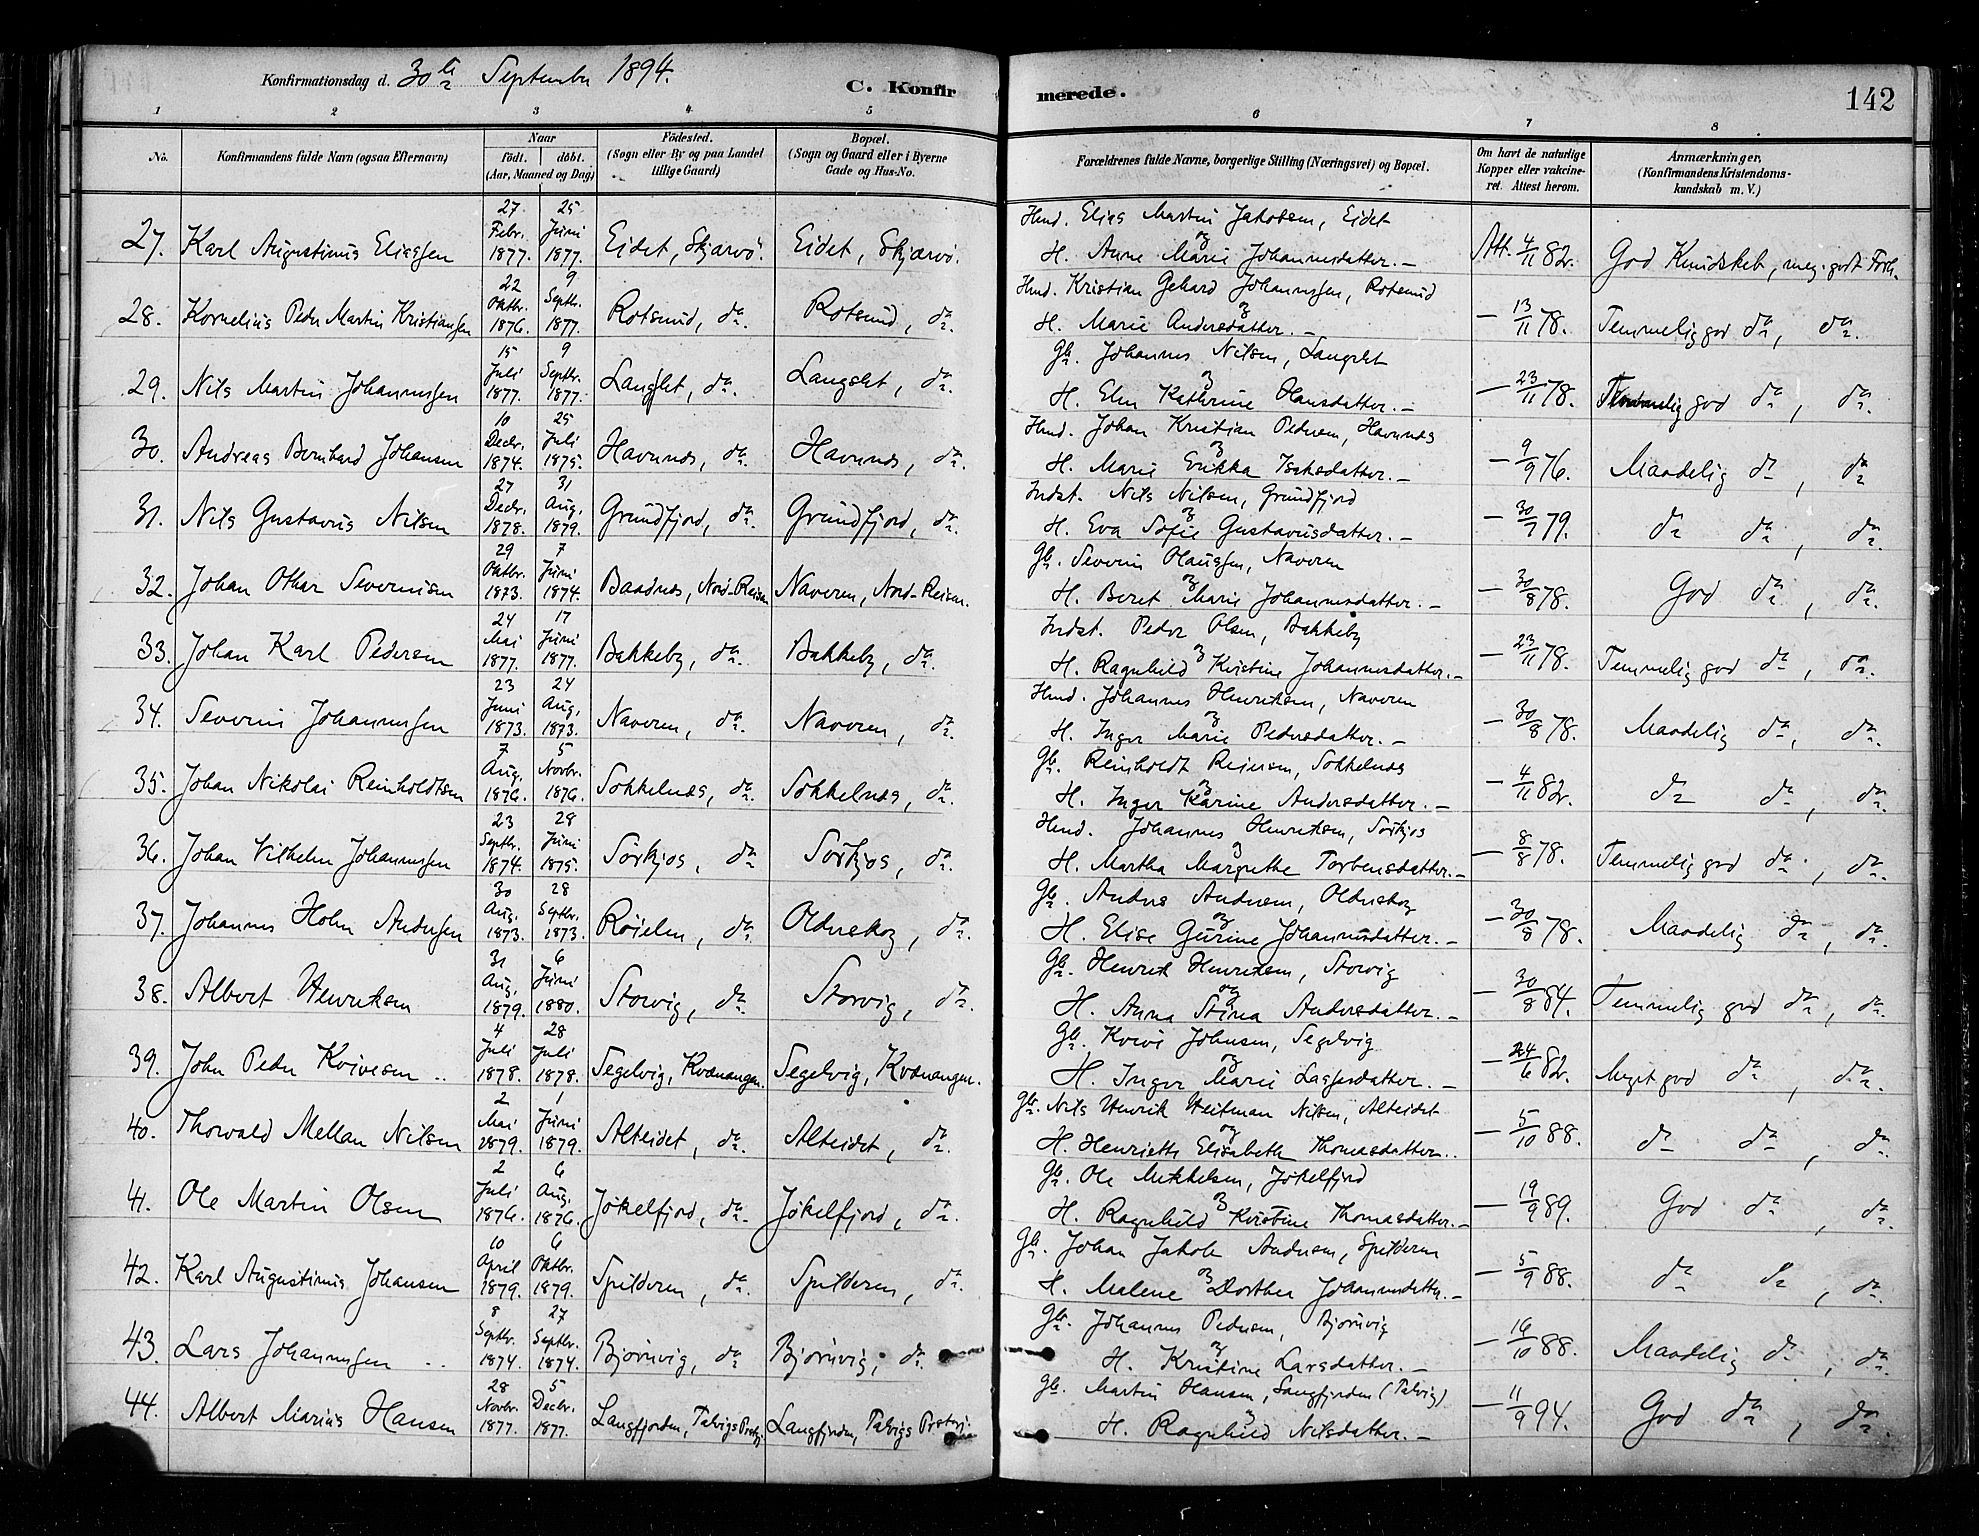 Konfirmationsdag d. 30te September 1894.
C. Konfirmerede.
142
1 2 3 4 5 6 7 8
No. Konfirmandens fulde Navn (ogsaa Efternavn) Naar födt. döbt. (Aar, Maaned og Dag) Födested. (Sogn eller By og paa Landet tillige Gaard) Bopæl. (Sogn og Gaard eller i Byerne Gade og Hus-No. Forældrenes fulde Navne, borgerlige Stilling (Næringsvei) og Bopæl. Om havt de naturlige Kopper eller vakcineret. Attest herom. Anmærkninger, (Konfirmandens Kristendomskundskab m. V.)
27. Karl Augustinus Eliassen 27 Febr. 1877. 25 Juni 1877. Eidet, Skjærvö. Eidet, Skjærvö. Hmd. Elias Martin Jakobsen, Eidet og H. Anne Marie Johannesdatter. – Att. 4/11 82. God Kundskab, meg. godt Forh.
28. Kornelius Peder Martin Kristiansen 22 Oktbr. 1876. 9 Septbr. 1877. Rotsund, do. Rotsund, do. Hmd. Kristian Gehard Johannessen, Rotsund og H. Marie Andersdatter. – – 13/11 78. Temmelig god do, do.
29. Nils Martin Johannessen 15 Juli 1877. 9 Septbr. 1877. Langslet, do. Langslet, do. Gbr. Johannes Nilsen, Langslet og H. Elen Kathrine Hansdatter. – – 23/11 78. Temmelig god do, do.
30. Andreas Bernhard Johansen 10 Decbr. 1874. 25 Juli 1875. Havnnes, do. Havnnes, do. Hmd. Johan Kristian Pedersen, Havnnes og H. Marie Erikka Isaksdatter. – – 9/9 76. Maadelig do, do
31. Nils Gustavus Nilsen 27 Decbr. 1878. 31 Aug. 1879. Grundfjord, do. Grundfjord, do. Indst. Nils Nilsen, Grundfjord og H. Eva Sofie Gustavusdatter. – – 30/7 79. do do, do.
32. Johan Othar Severinsen 29 Oktbr. 1873. 7 Juni 1874. Baadnes, Nord-Reisen Naveren, Nord-Reisen. Gbr. Severin Olaussen, Naveren og H. Beret Marie Johannesdatter. – – 30/8 78. God do, do.
33. Johan Karl Pedersen 24 Mai 1877. 17 Juni 1877. Bakkeby, do. Bakkeby, do. Indst. Peder Olsen, Bakkeby og H. Ragnhild Kristine Johannesdatter. – – 23/11 78. Temmelig god do, do.
34. Severin Johannessen 23 Juni 1873. 24 Aug. 1873. Naveren, do. Naveren, do. Hmd. Johannes Henriksen, Naveren og H. Inger Marie Pedersdatter. – – 30/8 78. Maadelig do, do.
35. Johan Nikolai Reinholdtsen 7 Aug. 1876. 5 Novbr. 1876. Sokkelnes, do. Sokkelnes, do. Gbr. Reinholdt Reiersen, Sokkelnes og H. Inger Karine Andersdatter. – – 4/11 82. do do, do.
36. Johan Vilhelm Johannessen 23 Septbr. 1874. 28 Juni 1875. Sörkjos, do Sörkjos, do. Hmd. Johannes Henriksen, Sörkjos og H. Martha Margrethe Torbensdatter. – – 8/8 78. Temmelig god do, do.
37. Johannes Holm Andersen 30 Aug. 1873. 28 Septbr. 1873. Röielen, do. Oldreskog, do. Gbr. Anders Andersen, Oldreskog og H. Elise Gurine Johannesdatter. – – 30/8 78. Maadelig do, do.
38. Albert Henriksen 31 Aug. 1879. 6 Juni 1880. Storvig, do. Storvig, do. Gbr. Henrik Henriksen, Storvig og H. Anna Stina Andersdatter. – – 30/8 84. Temmelig god do, do.
39. John Peder Kvivesen .. 4 Juli 1878. 28 Juli 1878. Segelvig, Kvænangen. Segelvig, Kvænangen. Gbr. Kvive Johnsen, Segelvig og H. Inger Marie Lassesdatter. – – 24/6 82. Meget god do, do.
40. Thorvald Mellan Nilsen 2 Mai 1879. 1 Juni 1879. Alteidet, do. Alteidet, do. Gbr. Nils Henrik Heitman Nilsen, Alteidet og H. Henriette Elisabeth Thomasdatter. – 5/10 88. do do, do.
41. Ole Martin Olsen 2 Juli 1876. 6 Aug. 1876. Jökelfjord, do. Jökelfjord, do. Gbr. Ole Mikkelsen, Jökelfjord og H. Ragnhild Kristine Thomasdatter. – – 19/9 89. God do, do.
42. Karl Augustinus Johansen 10 April 1879. 6 Oktbr. 1879. Spilderen, do. Spilderen, do. Gbr. Johan Jakob Andersen, Spilderen og H. Malene Dorthea Johannesdatter. – – 5/9 88. do do, do.
43. Lars Johannessen .. 8 Septbr. 1874. 27 Septbr. 1874. Björnvig, do Björnvig, do. Gbr. Johannes Pedersen, Björnvig og H. Kristine Larsdatter. – – 16/10 88. Maadelig do, do.
44. Albert Marius Hansen 28 Novbr. 1877. 5 Decbr. 1877. Langfjorden, Talvigs Prstgj. Langfjorden, Talvigs Prstgj. Gbr. Martin Hansen, Langfjorden (Talvig) og H. Ragnhild Nilsdatter. – – 11/9 94. God do, do.